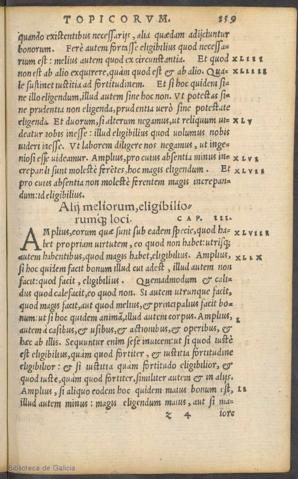 TOPICORVM. 359
quando existentibus necessarijs, alia quædam adijciuntur
bonorum. Ferè autem fortasse eligibilius quod necessa-
rium est: melius autem quod ex circunstantia. Et quod XLIII
non est ab alio exquirere, quàm quod est & ab alio. Qua- XLIIII
le sustinet iustitia ad fortitudinem. Et si hoc quidem si-
ne illo eligendum, illud autem sine hoc non. Vt potestas si-
ne prudentia non eligenda, prudentia verò sine potestate
eligenda. Et duorum, si alterum negamus, ut reliquum ui- XLV
deatur nobis inesse: illud eligibilius quod uolumus nobis
uideri inesse. Vt laborem diligere nos negamus, ut inge-
niosi esse uideamur. Amplius, pro cuius absentia minus in- XLVI
crepandi sunt molestè ferètes, hoc magis eligendum. Et XLVII
pro cuius absentia non molestè ferentem magis increpan-
dum: id eligibilius.
Alij meliorum, eligibilio-
rumq; loci. CAP. III.
AMplius, eorum quæ sunt sub eadem specie, quod ha- XLVIII
bet propriam uirtutem, eo quod non habet: utrisq;
autem habentibus, quod magis habet, eligibilius. Amplius, XLIX
si hoc quidem facit bonum illud cui adest, illud autem non
facit: quod facit, eligibilius. Quemadmodum & cali-
dius quod calefacit, eo quod non. Si autem utrunque facit,
quod magis facit, aut quod melius, & principalius facit bo-
num: ut si hoc quidem animã, illud autem corpus. Amplius, L
autem à casibus, & usibus, & actionibus, & operibus, &
hæc ab illis. Sequuntur enim sese inuicem: ut si quod iustè
est eligibilius, quàm quod fortiter, & iustitia fortitudine
eligibilior: & si iustitia quàm fortitudo eligibilior, &
quod iustè, quàm quod fortiter, similiter autem & in alijs.
Amplius, si aliquo eodem hoc quidem maius bonum est, LI
illud autem minus: magis eligendum maius, aut si ma-
z 4 iore
Biblioteca de Galicia